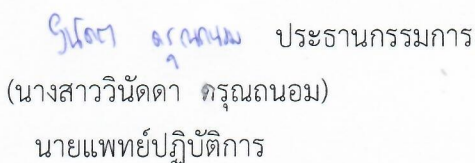 วินัดดา ดรุณถนอม ประธานกรรมการ
(นางสาววินัดดา ดรุณถนอม)
นายแพทย์ปฏิบัติการ